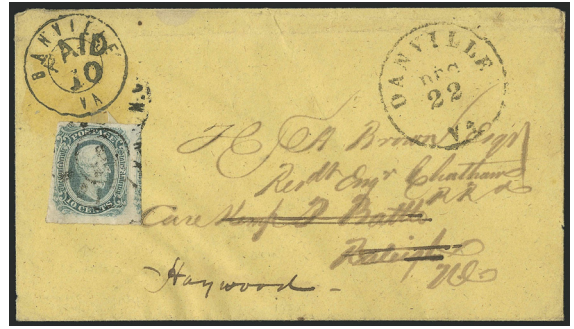 DANVILLE
PAID
10
VA
DANVILLE
DEC
22
Va
POSTAGE
10 CENTS
H A Brown Esqr
Resdt Engr Chatham
R R
Care Kemp P Battle
Raleigh
NC
Haywood